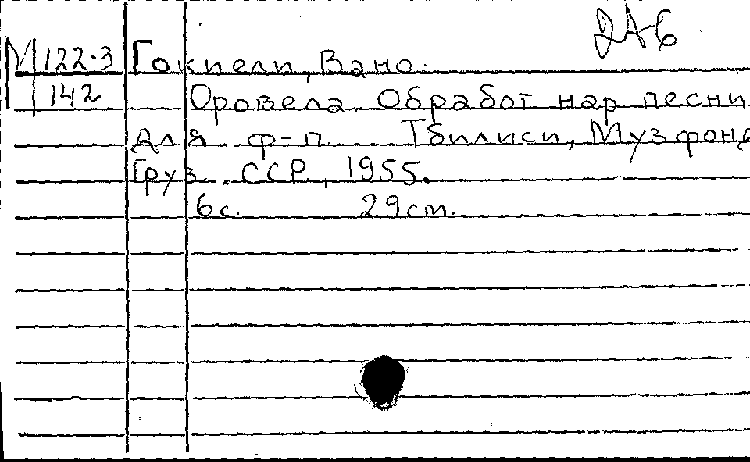 2А6
М122.3 Гокиели, Вано.
142 Оровела. Обработ нар песни
для ф-п. Тбилиси, Музфонд
Груз. ССР, 1955.
6с. 29см.